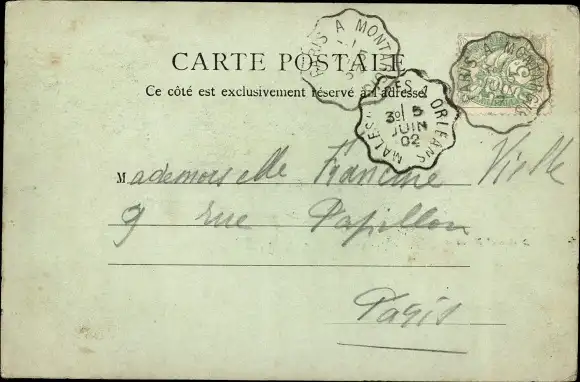 CARTE POSTALE
Ce côté est exclusivement réservé à l'adresse
PARIS A MONTARGIS
MALES A ORLEANS
3º 5
JUIN
02
PARIS A MONTARGIS
Mademoiselle Francine Vielle
9 rue Papillon
Paris